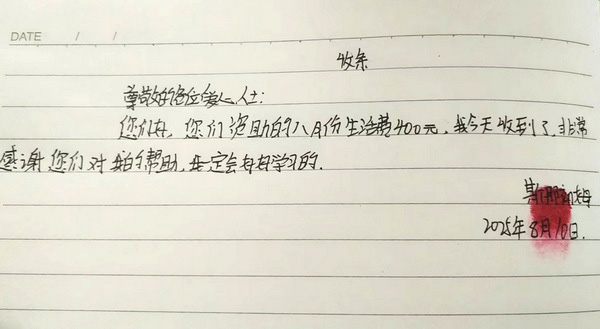 DATE / /
收条
尊敬的各位爱心人士:
您们好,您们资助的八月份生活费400元,我今天收到了,非常
感谢您们对我的帮助,我一定会好好学习的.
2025年8月10日.